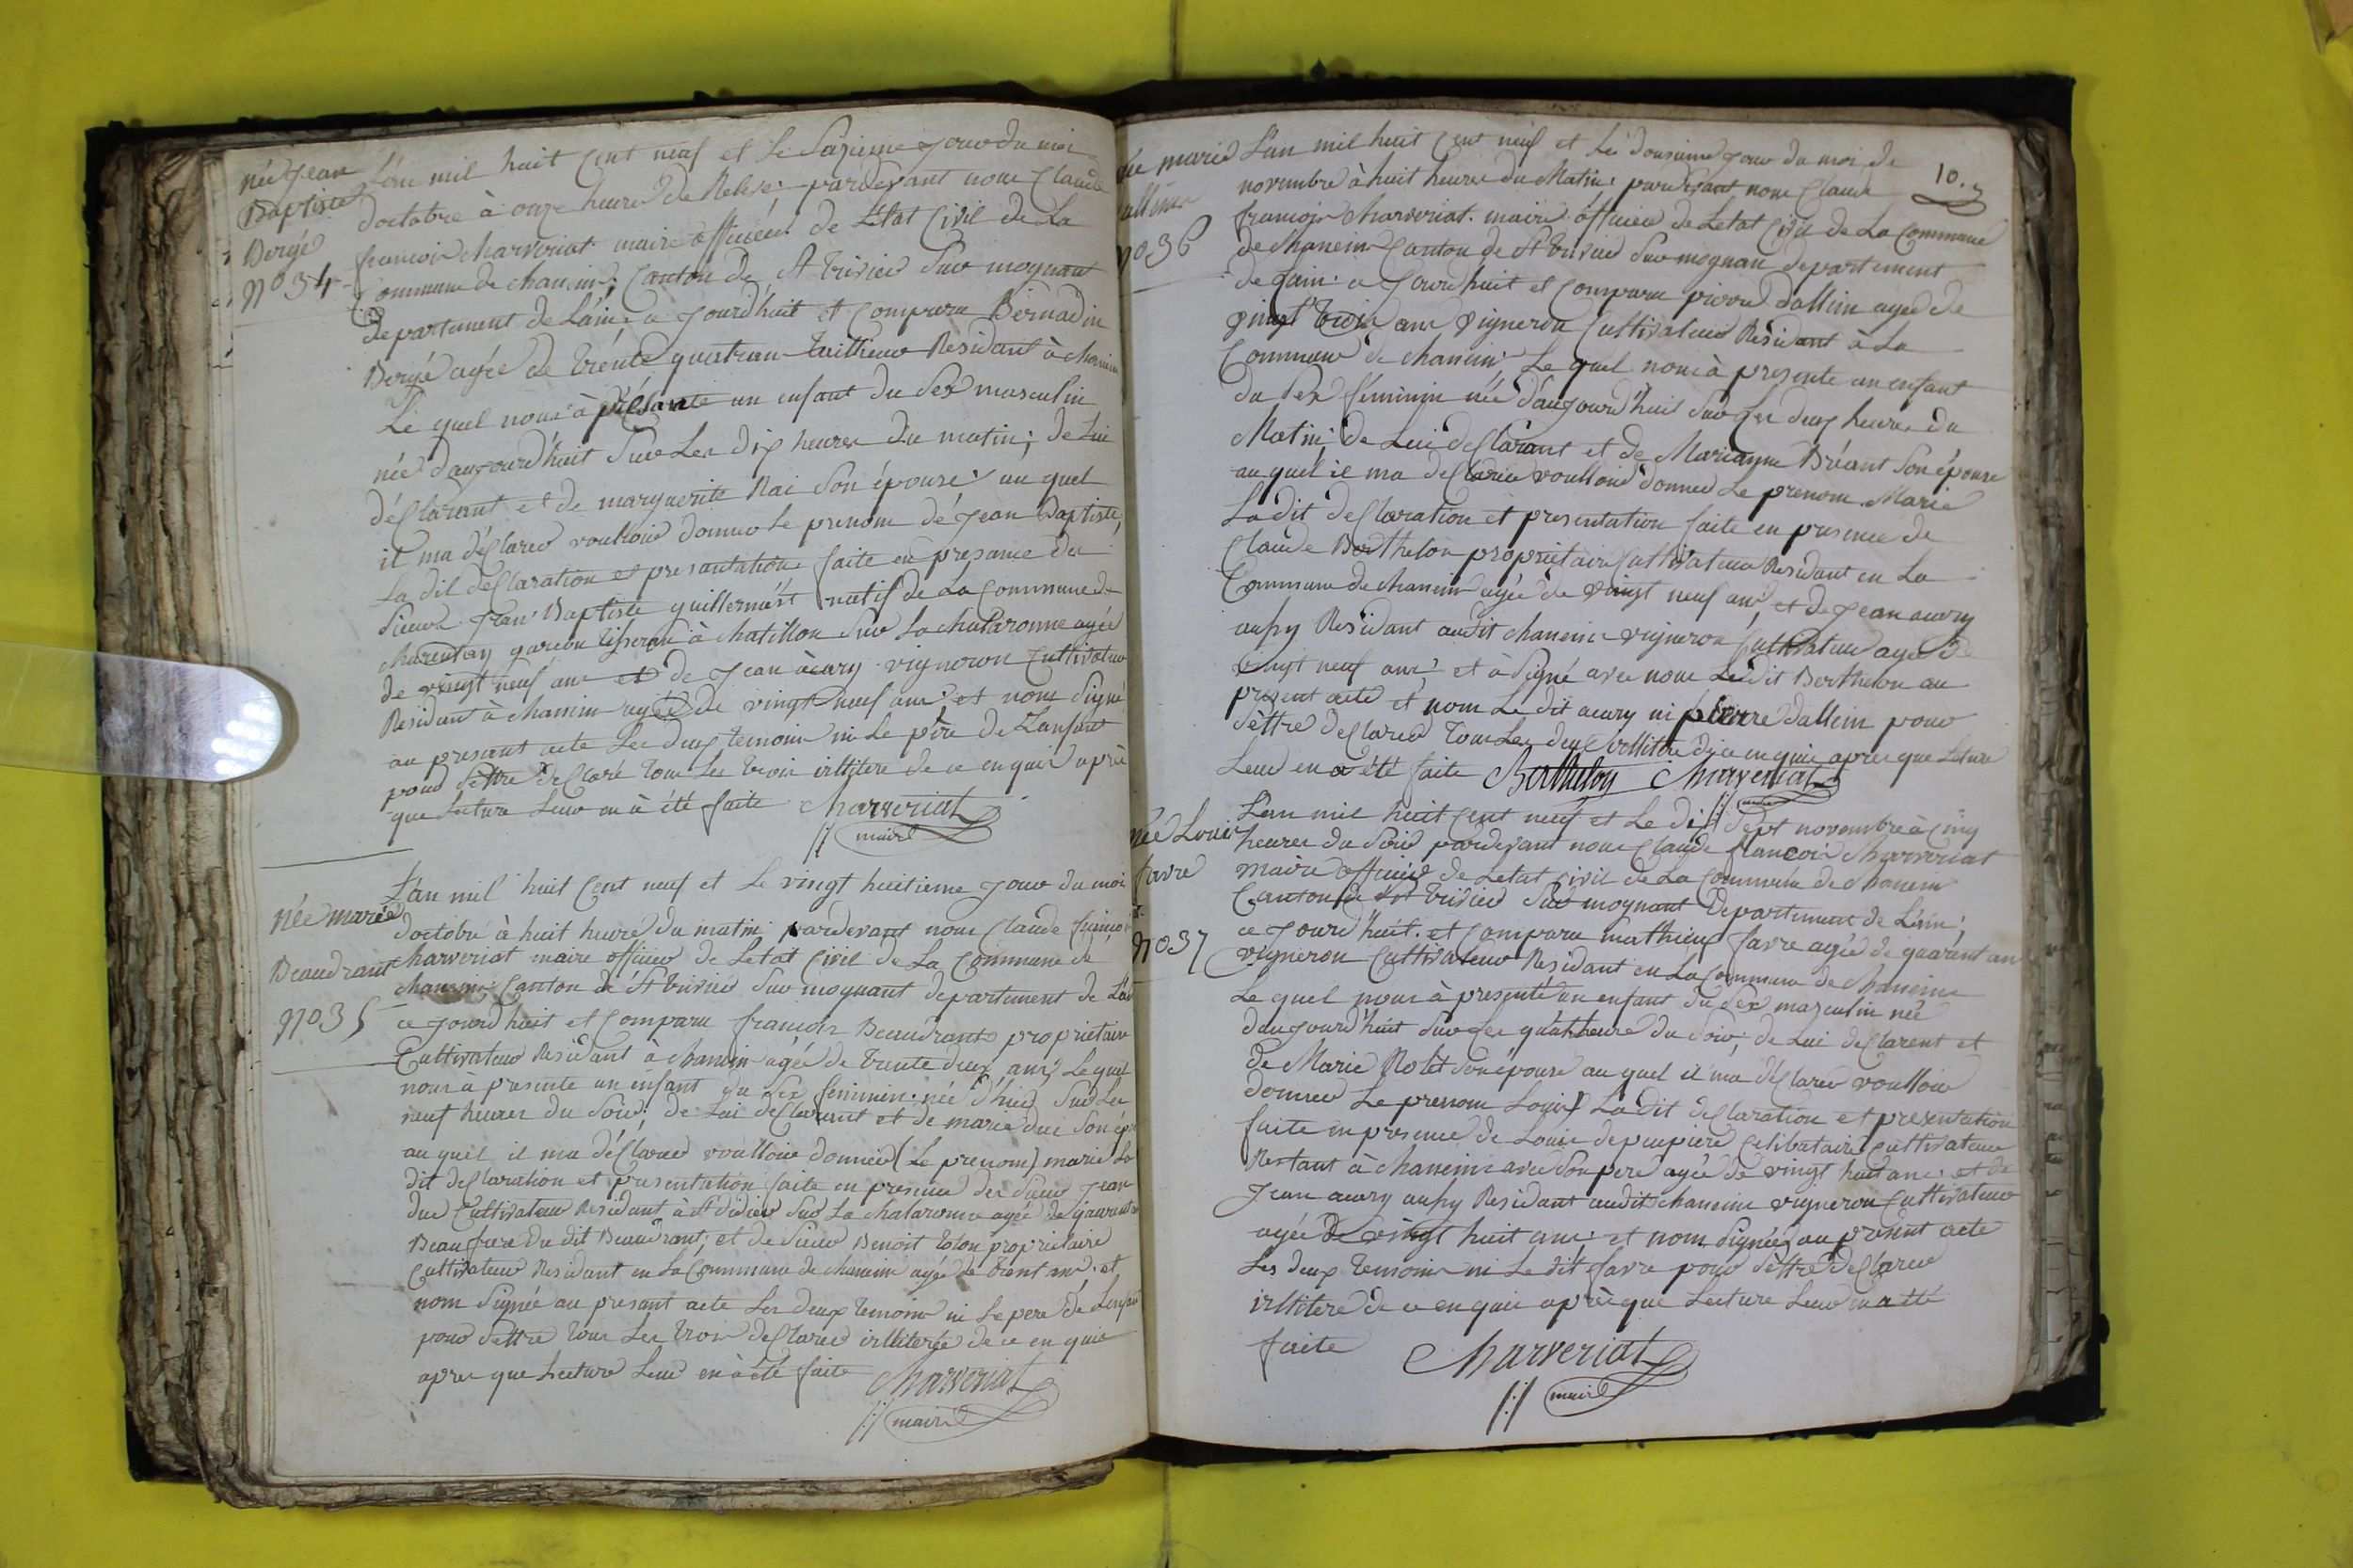 née Jean
Baptiste
Bergé
no 34
L'an mil huit Cent neuf et le Sazieme Jour du moi
doctobre à onze heures de Relevé; pardevant nous Claude
francois Charveriat maire officier de L'Etat Civil de La
Commune de chanein; Canton de St trivier Sur mognant
departement de L'ain. a Jourd'huit et Comparu Bernadin
Bergé agée de trente quatran taillieur Residant à chanein
Le quel nous à présanté un enfant du Sex masculin
née D'aujourd'huit Sur Les dix heures du matin; de Lui
déClarant et de marguerite Rai Son épouse; au quel
il ma déClarer voulloir donner le prenom de Jean Baptiste,
La dit déClaration et presantation faite en presance du
Sieur Jean Baptiste guillermért natif de La Commune de
Charentay garcon tisseran à Chatillon Sur La chalaronne agée
de vingt neuf ans et de Jean àcury vigneron Cultivateur
Residant à Chanein agée de vingt neuf ans; et nons Signé
au presant acte Les deux temoins ni Le père de L'anfant
pour Settre déClaré tous Les trois illitere de ce enquis après
que Lecture Leur en à été faite Charveriat
maire
née marie
Beaudrant
no 35
L'an mil huit Cent neuf et Le vingt huitieme Jour du moi
doctobre à huit heure du matin pardevant nous Claude francois
Charveriat maire officier de Letat Civil de La Commune de
chanein Canton de St trivier Sur mognant departement de L'ain
ce Jourd'huit et Comparu francois Beaudrant proprietaire
Cultivateur Residant à Chanein agée de trente deux ans; Le quel
nous à presente un enfant du Sex feminin née d'hier Sur Les
neuf heures du Soir; de Lui deClarant et de marie duc Son ép
au quel il ma déClarer voulloir donner (Le prenom) marie La
dit deClaration et presentation faite en presence des Sieur Jean
duc Cultivateur Residant à St didier Sur La chalaronne agée de
Beaufrere du dit Beaudrant; et de Sieur Benoit toton proprietaire
Cultivateur Residant en La Commune de chanein agée de trent ans. et
nom Signée au presant acte Les deux temoins ni Le pere de Lenfan
pour Settre tous Les trois deClarer illiterée de ce en quis
apres que Lecture Leur en à été faite Charveriat
maire
10.
née marie
dallim
no 36
L'an mil huit Cent neuf et Le douzieme Jour du moi de
novembre à huit heures du Matin: pardevant nous Claude
francois Charveriat. maire officier de Letat Civil de La Commune
de Chanein Canton de St trivier Sur mognan departement
de L'ain: ce Jourd'huit et Comparu pierre dallim agée de
vingt trois ans Vigneron Cultivateur Residant à La
Commune de chanein; Le quel nous à presente un enfant
du Sex féminin née d'aujourd'huit Sur Les deux heures du
Matin; de Lui deClarant et de Marianne Bréant Son épouse
au quel il ma deClarer voulloir donner Le prenom Marie
La dit deClaration et presentation faite en presence de
Claude Berthelon proprietaire Cultivateur Residant en La
Commune de chanein agée de vingt neuf ans; et de Jean acury
aussy Residant audit chanein vigneron Cultivateur agée de
vingt neuf ans; et à Signé avec nous Le dit Berthelon au
present acte et nom Le dit acury ni pierre dallim pour
Settre deClarer tous Les deux illitere de ce enquis apres que Letture
Leur en a été faite Berthelon Charveriat
née Louis
favre
no 37
L'an mil huit Cent neuf et Le dix Sept novembre à Cinq
heures du Soir pardevant nous Claude francois Charveriat
Maire officier de Letat Civil de La Commune de Chanein
Canton de St trivier Sur mognant departement de L'ain;
ce Jourd'huit. et Comparu mathieu favre agée de quarant ans
vigneron Cultivateur Residant en La Commune de Chanein
Le quel nous à presenté un enfant du Sex masculin née
daujourd'huit Sur Les quat heure du Soir; de Lui deClarent et
de Marie Rolet Son épouse au quel il ma déClarer voulloir
donner Le prenom Louis) La dit deClaration et presentation
faite en presence de Louis depeupiere Celibataire Cultivateur
Restant à Chanein avec Son pere agée de vingt huit ans. et de
Jean acury aussy Residant audit Chanein vigneron Cultivateur
agée de vingt huit ans; et nom Signée au present acte
Les deux temoins ni Le dit favre pour Settre deClarer
illitere de ce enquis après que Lecture Leur en a été
faite Charveriat
maire